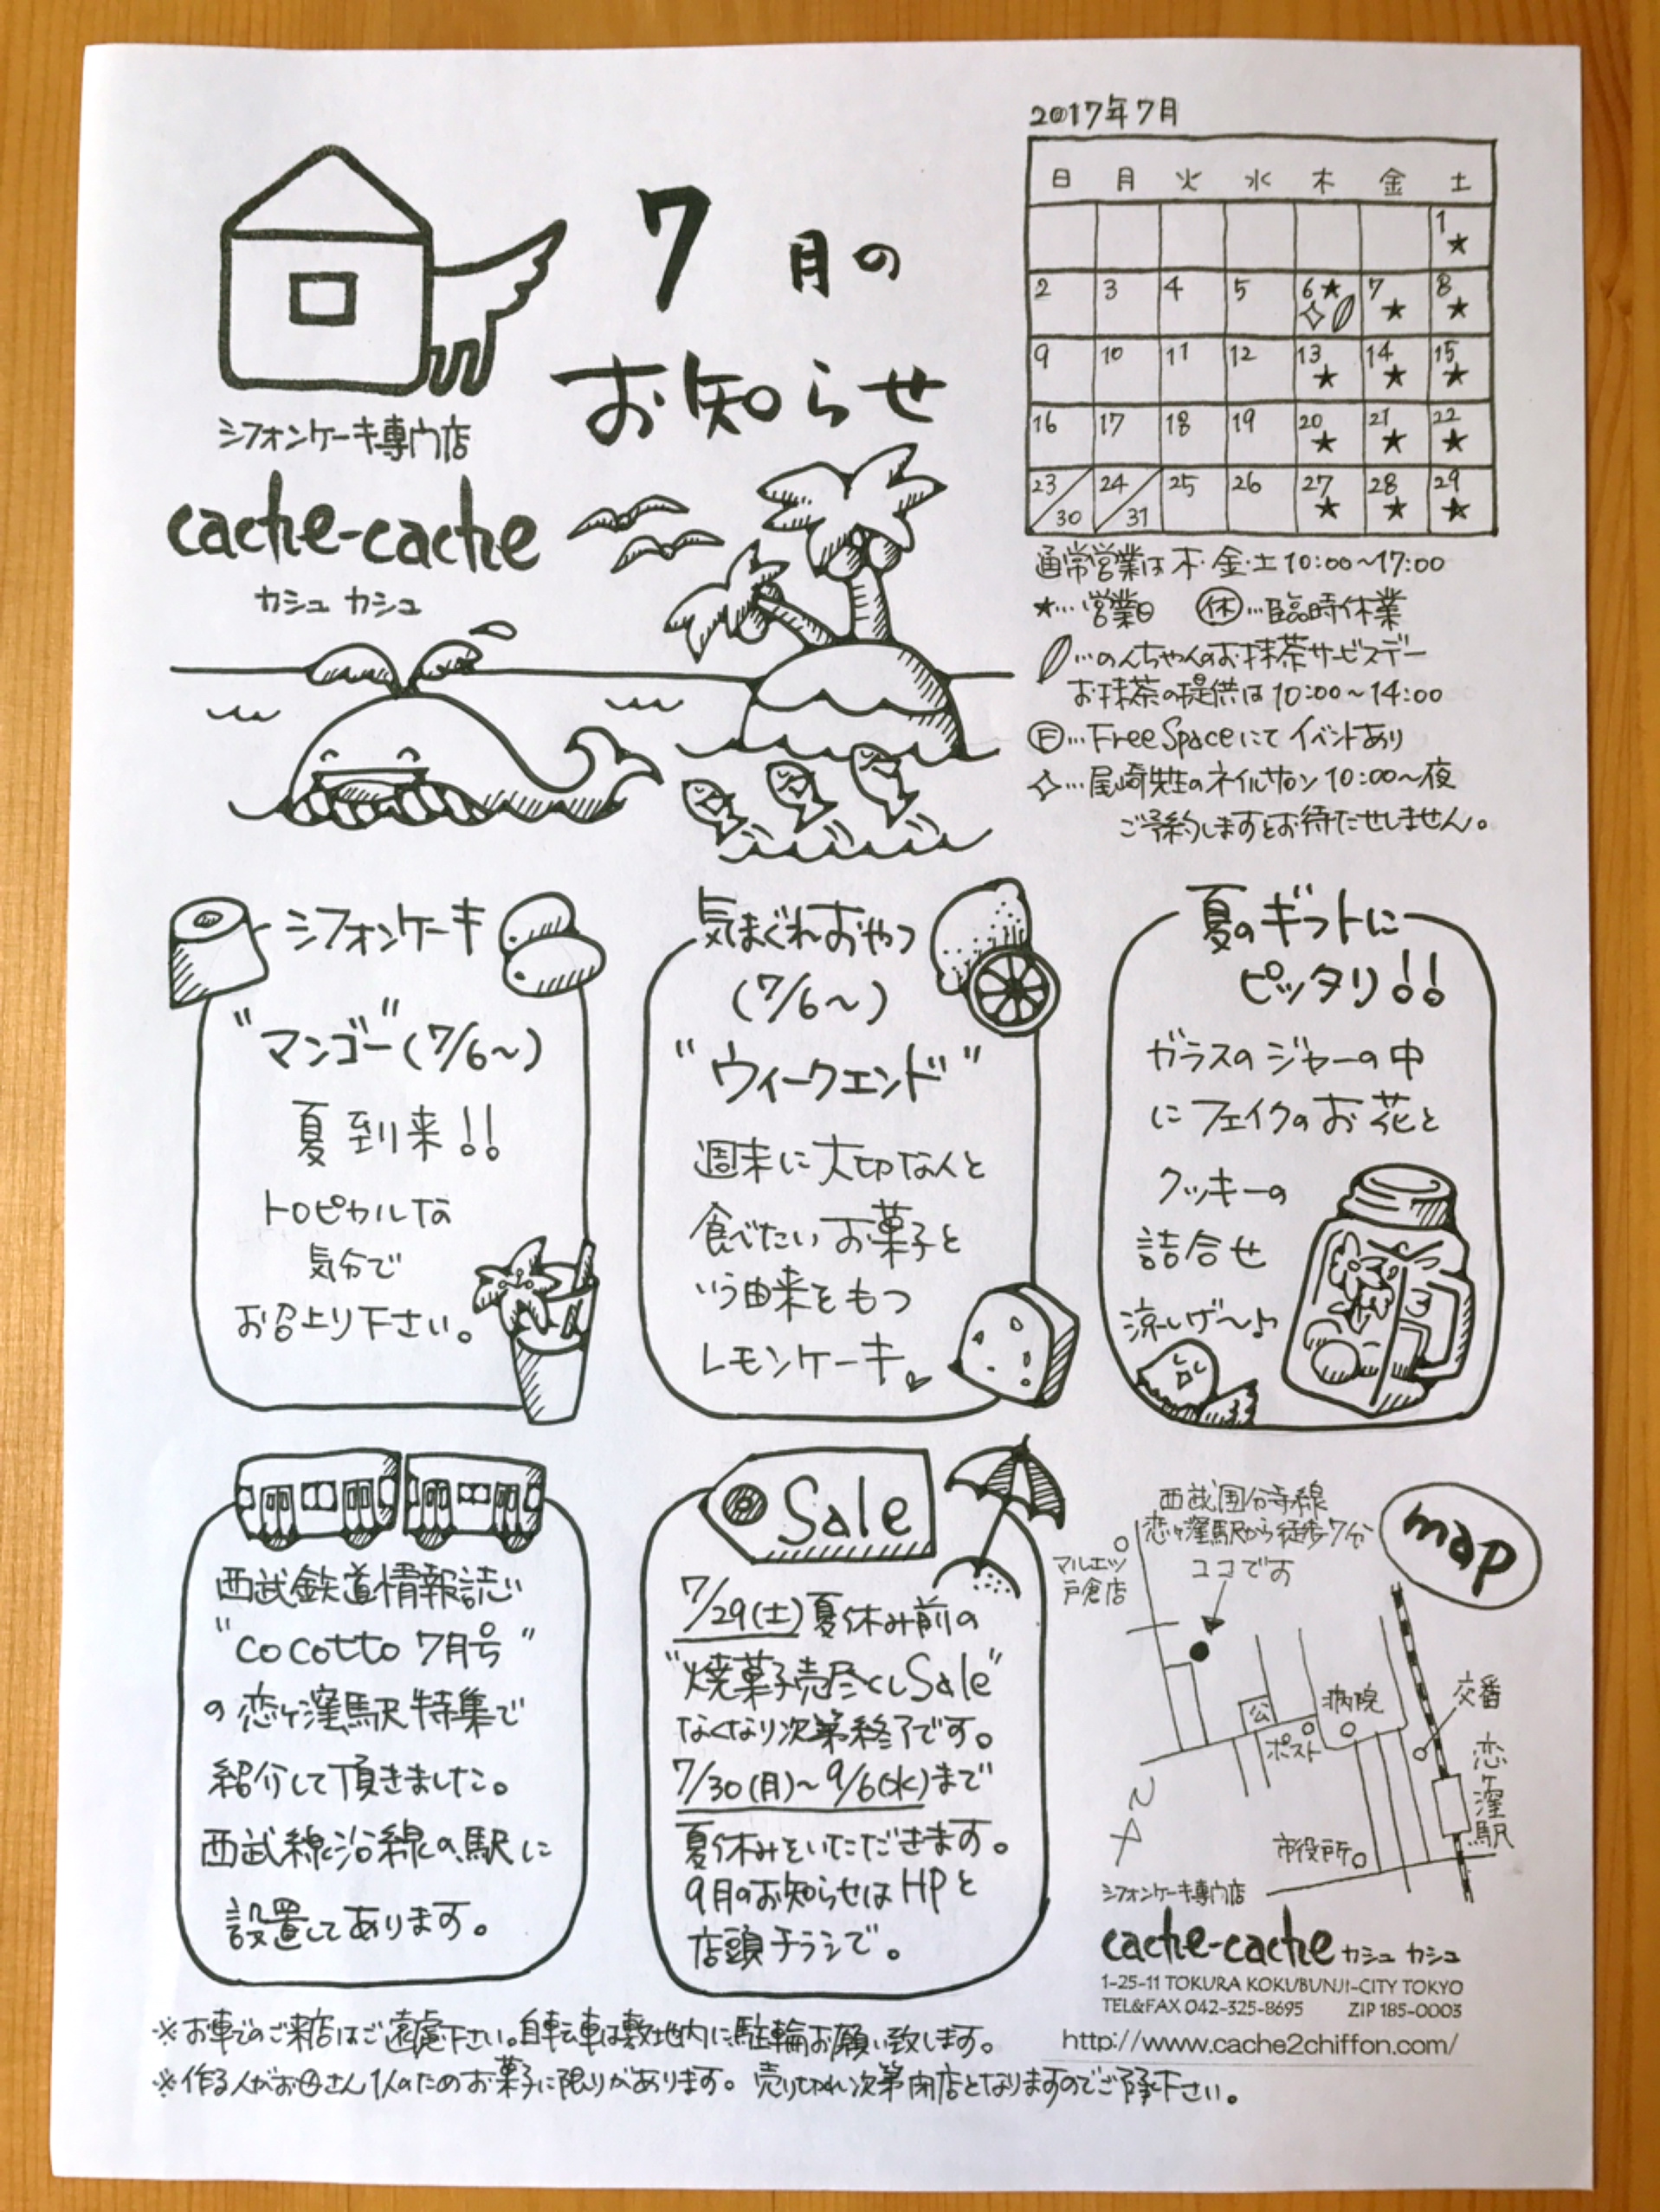 7月の
お知らせ
シフォンケーキ専門店
cache-cache
カシュ カシュ
2017年7月
日 月 火 水 木 金 土
1★
2 3 4 5 6★ 7★ 8★
9 10 11 12 13★ 14★ 15★
16 17 18 19 20★ 21★ 22★
23/30 24/31 25 26 27★ 28★ 29★
通常営業は木・金・土10:00~17:00
★…営業日 休…臨時休業
…のんちゃんのお抹茶サービスデー
お抹茶の提供は10:00~14:00
F…Free Spaceにてイベントあり
✧…尾崎先生のネイルサロン10:00~夜
ご予約しますとお待たせしません。
シフォンケーキ
"マンゴー"(7/6~)
夏到来!!
トロピカルな
気分で
お召上り下さい。
気まぐれおやつ
(7/6~)
"ウィークエンド"
週末に大切な人と
食べたいお菓子と
いう由来をもつ
レモンケーキ♪
夏のギフトに
ピッタリ!!
ガラスのジャーの中
にフェイクのお花と
クッキーの
詰合せ
涼しげ〜♪
西武鉄道情報誌
"cocotto 7月号"
の恋ヶ窪駅特集で
紹介して頂きました。
西武線沿線の駅に
設置してあります。
Sale
7/29(土)夏休み前の
"焼菓子売尽くしSale"
なくなり次第終了です。
7/30(月)~9/6(水)まで
夏休みをいただきます。
9月のお知らせはHPと
店頭チラシで。
map
西武国分寺線
恋ヶ窪駅から徒歩7分
ココです
マルエツ
戸倉店
公
病院
ポスト
交番
恋ヶ窪駅
市役所
シフォンケーキ専門店
cache-cache カシュ カシュ
1-25-11 TOKURA KOKUBUNJI-CITY TOKYO
TEL&FAX 042-325-8695 ZIP 185-0003
http://www.cache2chiffon.com/
※お車でのご来店はご遠慮下さい。自転車は敷地内に駐輪お願い致します。
※作る人がお母さん1人のためお菓子に限りがあります。売り切れ次第閉店となりますのでご了承下さい。